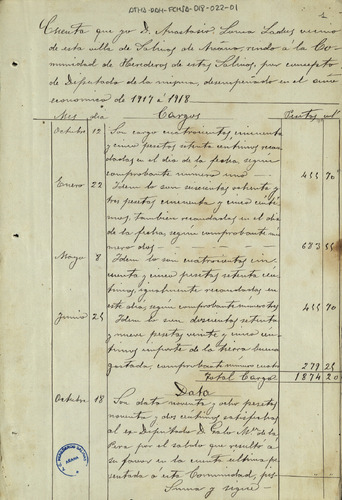 ATHA-DAH-FCHSA-018-022-01
1
Cuenta que yo D. Anastasio Lades vecino
de esta villa de Salinas de Añana, rindo a la Co-
munidad de Herederos de estas Salinas, por concepto
de Diputado de la misma, desempeñado en el año
economico de 1917 á 1918.
Mes dia Cargos Pesetas cts
Octubre 12 Son cargo cuatrocientas, cincuenta
y cinco pesetas setenta centimos recau-
dadas en el dia de la fecha, segun
comprobante numero uno 455 70
Enero 22 Idem lo son seiscientas ochenta y
tres pesetas cincuenta y cinco cénti-
mos, tambien recaudadas en el dia
de la fecha, según comprobante nú-
mero dos 683 55
Mayo 8 Idem lo son cuatrocientas cin-
cuenta y cinco pesetas setenta cen-
timos, igualmente recaudadas en
este dia, según comprobante número tres 455 70
Junio 25 Idem lo son doscientas setenta
y nueve pesetas veinte y cinco cén-
timos importe de la tierra buena
gastada, comprobante número cuatro 279 25
Total Cargo 1874 20
Data
Octubre 18 Son data noventa y ocho pesetas
noventa y dos centimos satisfechas
al ex-Diputado D. Mª de la
por el saldo que resultó a
su favor en la cuenta ultima pre-
sentada á esta Comunidad,
Suma y sigue